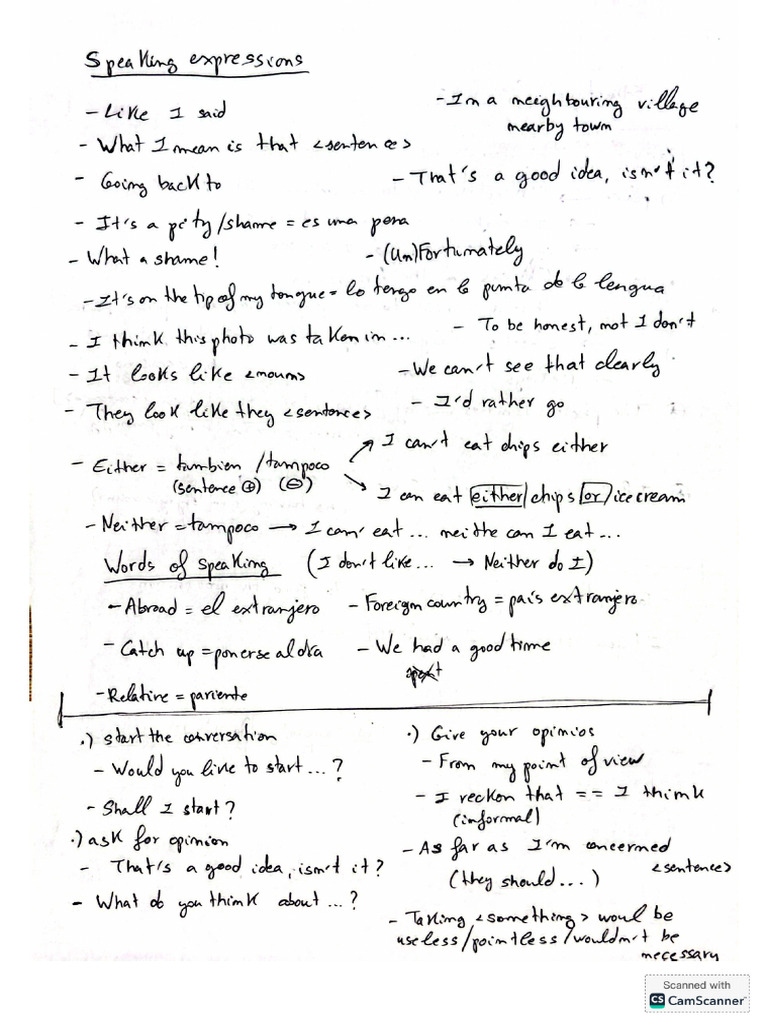 Speaking expressions
- Like I said
- In a neighbouring village
nearby town
- What I mean is that <sentence>
- Going back to
- That's a good idea, isn't it?
- It's a pity/shame = es una pena
- What a shame!
- (Un)Fortunately
- It's on the tip of my tongue = lo tengo en la punta de la lengua
- I think this photo was taken in ...
- To be honest, not I don't
- It looks like <noun>
- We can't see that clearly
- They look like they <sentence>
- I'd rather go
- Either = tambien /tampoco
(sentence +) (-)
I can't eat chips either
I can eat either/chips or/ice cream
- Neither = tampoco → I can' eat ... neithe can I eat ...
Words of speaking (I don't like ... → Neither do I)
- Abroad = el extranjero
- Foreign country = país extranjero
- Catch up = ponerse al día
- We had a good time
- Relative = pariente
.) start the conversation
- Would you like to start ... ?
- Shall I start?
.) ask for opinion
- That's a good idea, isn't it?
- What do you think about ... ?
.) Give your opinios
- From my point of view
- I reckon that == I think
(informal)
- As far as I'm concerned
<sentence>
(they should ...)
- Taking <something> woul be
useless/pointless/wouldn't be
necessary
Scanned with
CS CamScanner